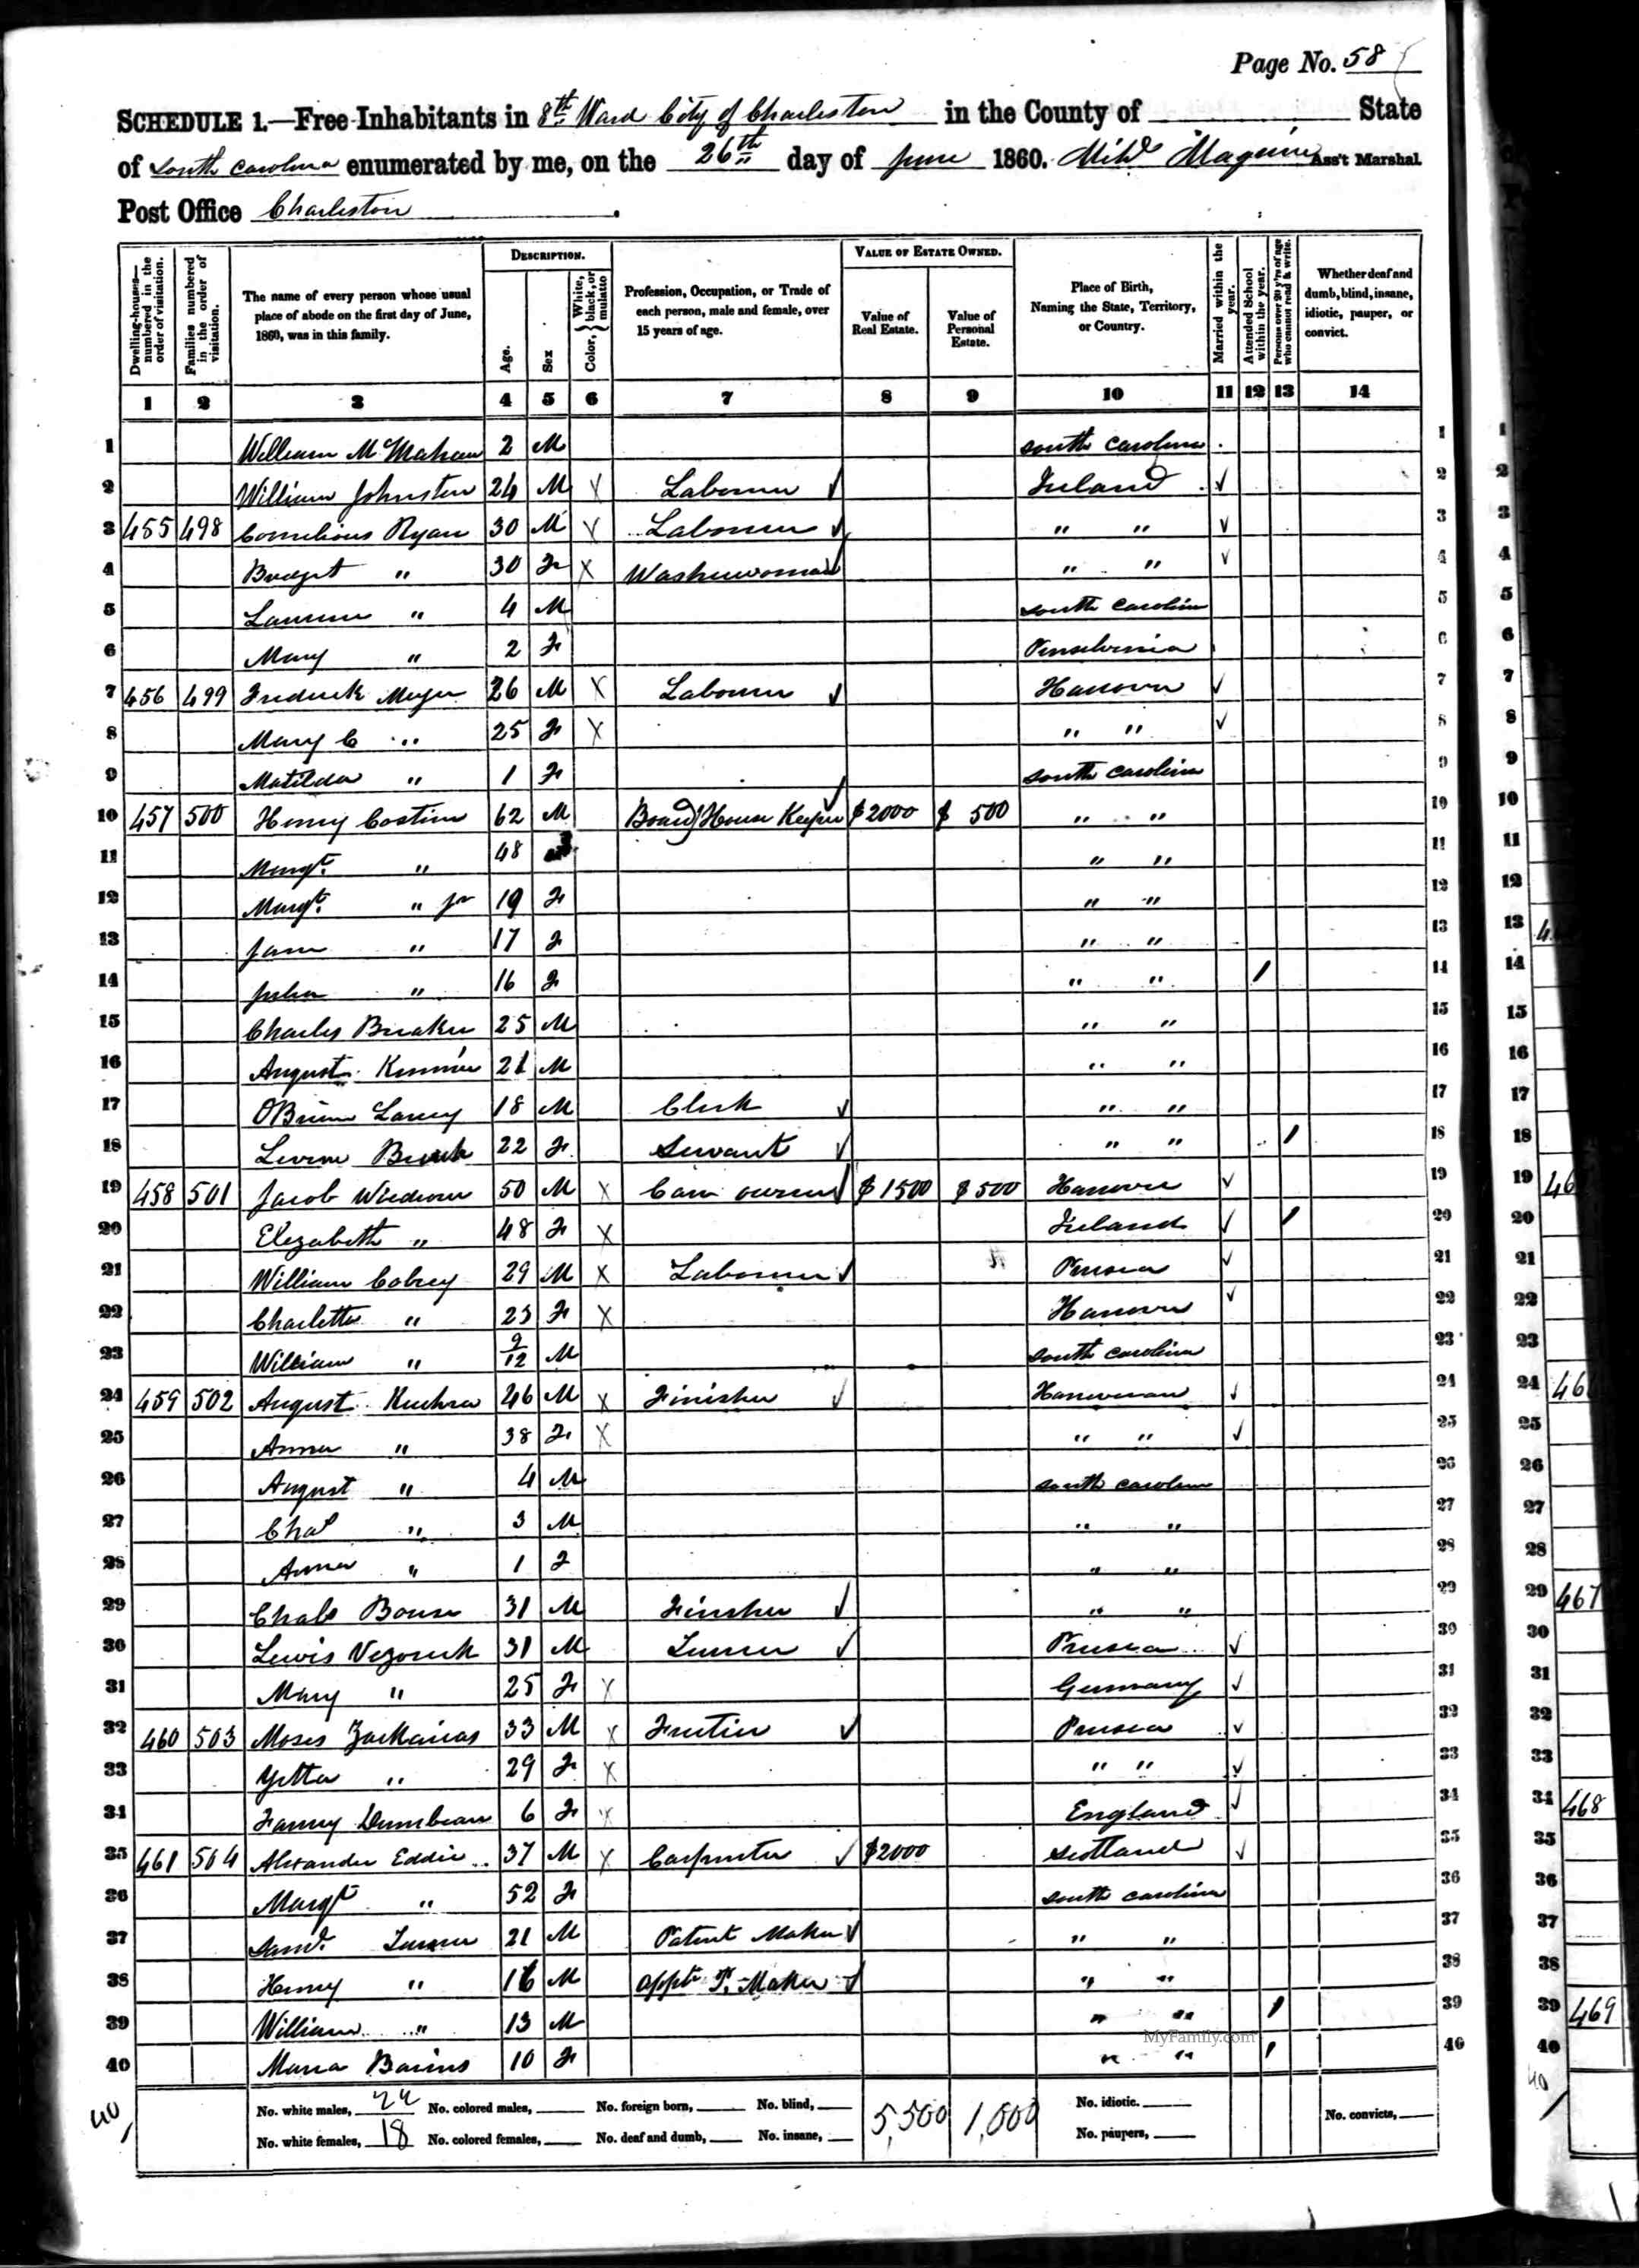 Page No. 58
SCHEDULE 1.—Free Inhabitants in 8th Ward City of Charleston in the County of State
of South Carolina enumerated by me, on the 26th day of June 1860. Ass't Marshal.
Post Office Charleston.
DESCRIPTION. VALUE OF ESTATE OWNED.
Dwelling-houses—numbered in the order of visitation. Families numbered in the order of visitation. The name of every person whose usual place of abode on the first day of June, 1860, was in this family. Age. Sex Color, { White, black, or mulatto Profession, Occupation, or Trade of each person, male and female, over 15 years of age. Value of Real Estate. Value of Personal Estate. Place of Birth, Naming the State, Territory, or Country. Married within the year. Attended School within the year. Persons over 20 y'rs of age who cannot read & write. Whether deaf and dumb, blind, insane, idiotic, pauper, or convict.
1 2 3 4 5 6 7 8 9 10 11 12 13 14
1 William McMahan 2 M South Carolina 1
2 William Johnston 24 M X Labourer ✓ Ireland ✓ 2
3 455 498 Cornelious Ryan 30 M X Labourer ✓ " " ✓ 3
4 Bridget " 30 F X Washerwoman ✓ " " ✓ 4
5 " 4 M South Carolina 5
6 Mary " 2 F 6
7 456 499 Frederick Meyer 26 M X Labourer ✓ Hanover ✓ 7
8 Mary C " 25 F X " " ✓ 8
9 Matilda " 1 F South Carolina 9
10 457 500 Henry 62 M Board House Keeper ✓ $2000 $ 500 " " 10
11 Margt. " 48 " " 11
12 Margt. " Jr 19 F " " 12
13 Jane " 17 F " " 13
14 Julia " 16 F " " / 14
15 Charles 25 M " " 15
16 August 21 M " " 16
17 OBrien 18 M Clerk ✓ " " 17
18 22 F Servant ✓ " " / 18
19 458 501 Jacob 50 M X owner ✓ $1500 $500 Hanover ✓ 19
20 Elizabeth " 48 F X Ireland ✓ / 20
21 William 29 M X Labourer ✓ Prusea ✓ 21
22 Charlette " 23 F X Hanover ✓ 22
23 William " 9/12 M South Carolina 23
24 459 502 August 46 M X Finisher ✓ ✓ 24
25 Anna " 38 F X " " ✓ 25
26 August " 4 M South Carolina 26
27 Chas " 3 M " " 27
28 Anna " 1 F " " 28
29 Chals 31 M Finsher ✓ " " 29
30 Lewis 31 M ✓ Prusea ✓ 30
31 Mary " 25 F X Germany ✓ 31
32 460 503 Moses Zackarias 33 M X ✓ Prusea ✓ 32
33 Yetta " 29 F X " " ✓ 33
34 Fanny 6 F X England ✓ 34
35 461 504 Alexander Eddie 37 M X Carpenter ✓ $2000 Scotland ✓ 35
36 Margt " 52 F South Carolina 36
37 Saml. Turner 21 M Patent Maker ✓ " " 37
38 Henry " 16 M Appt P. Maker ✓ " " 38
39 William " 13 M " " / 39
40 Maria 10 F " " / 40
MyFamily.com
40
No. white males, 22 No. colored males, No. foreign born, No. blind, 5,500 1,000 No. idiotic. No. convicts,
No. white females, 18 No. colored females, No. deaf and dumb, No. insane, No. paupers,
1
2
3
4
5
6
7
8
9
10
11
12
13
14
15
16
17
18
19
20
21
22
23
24
25
26
27
28
29 467
30
31
32
33
34 468
35
36
37
38
39 469
40